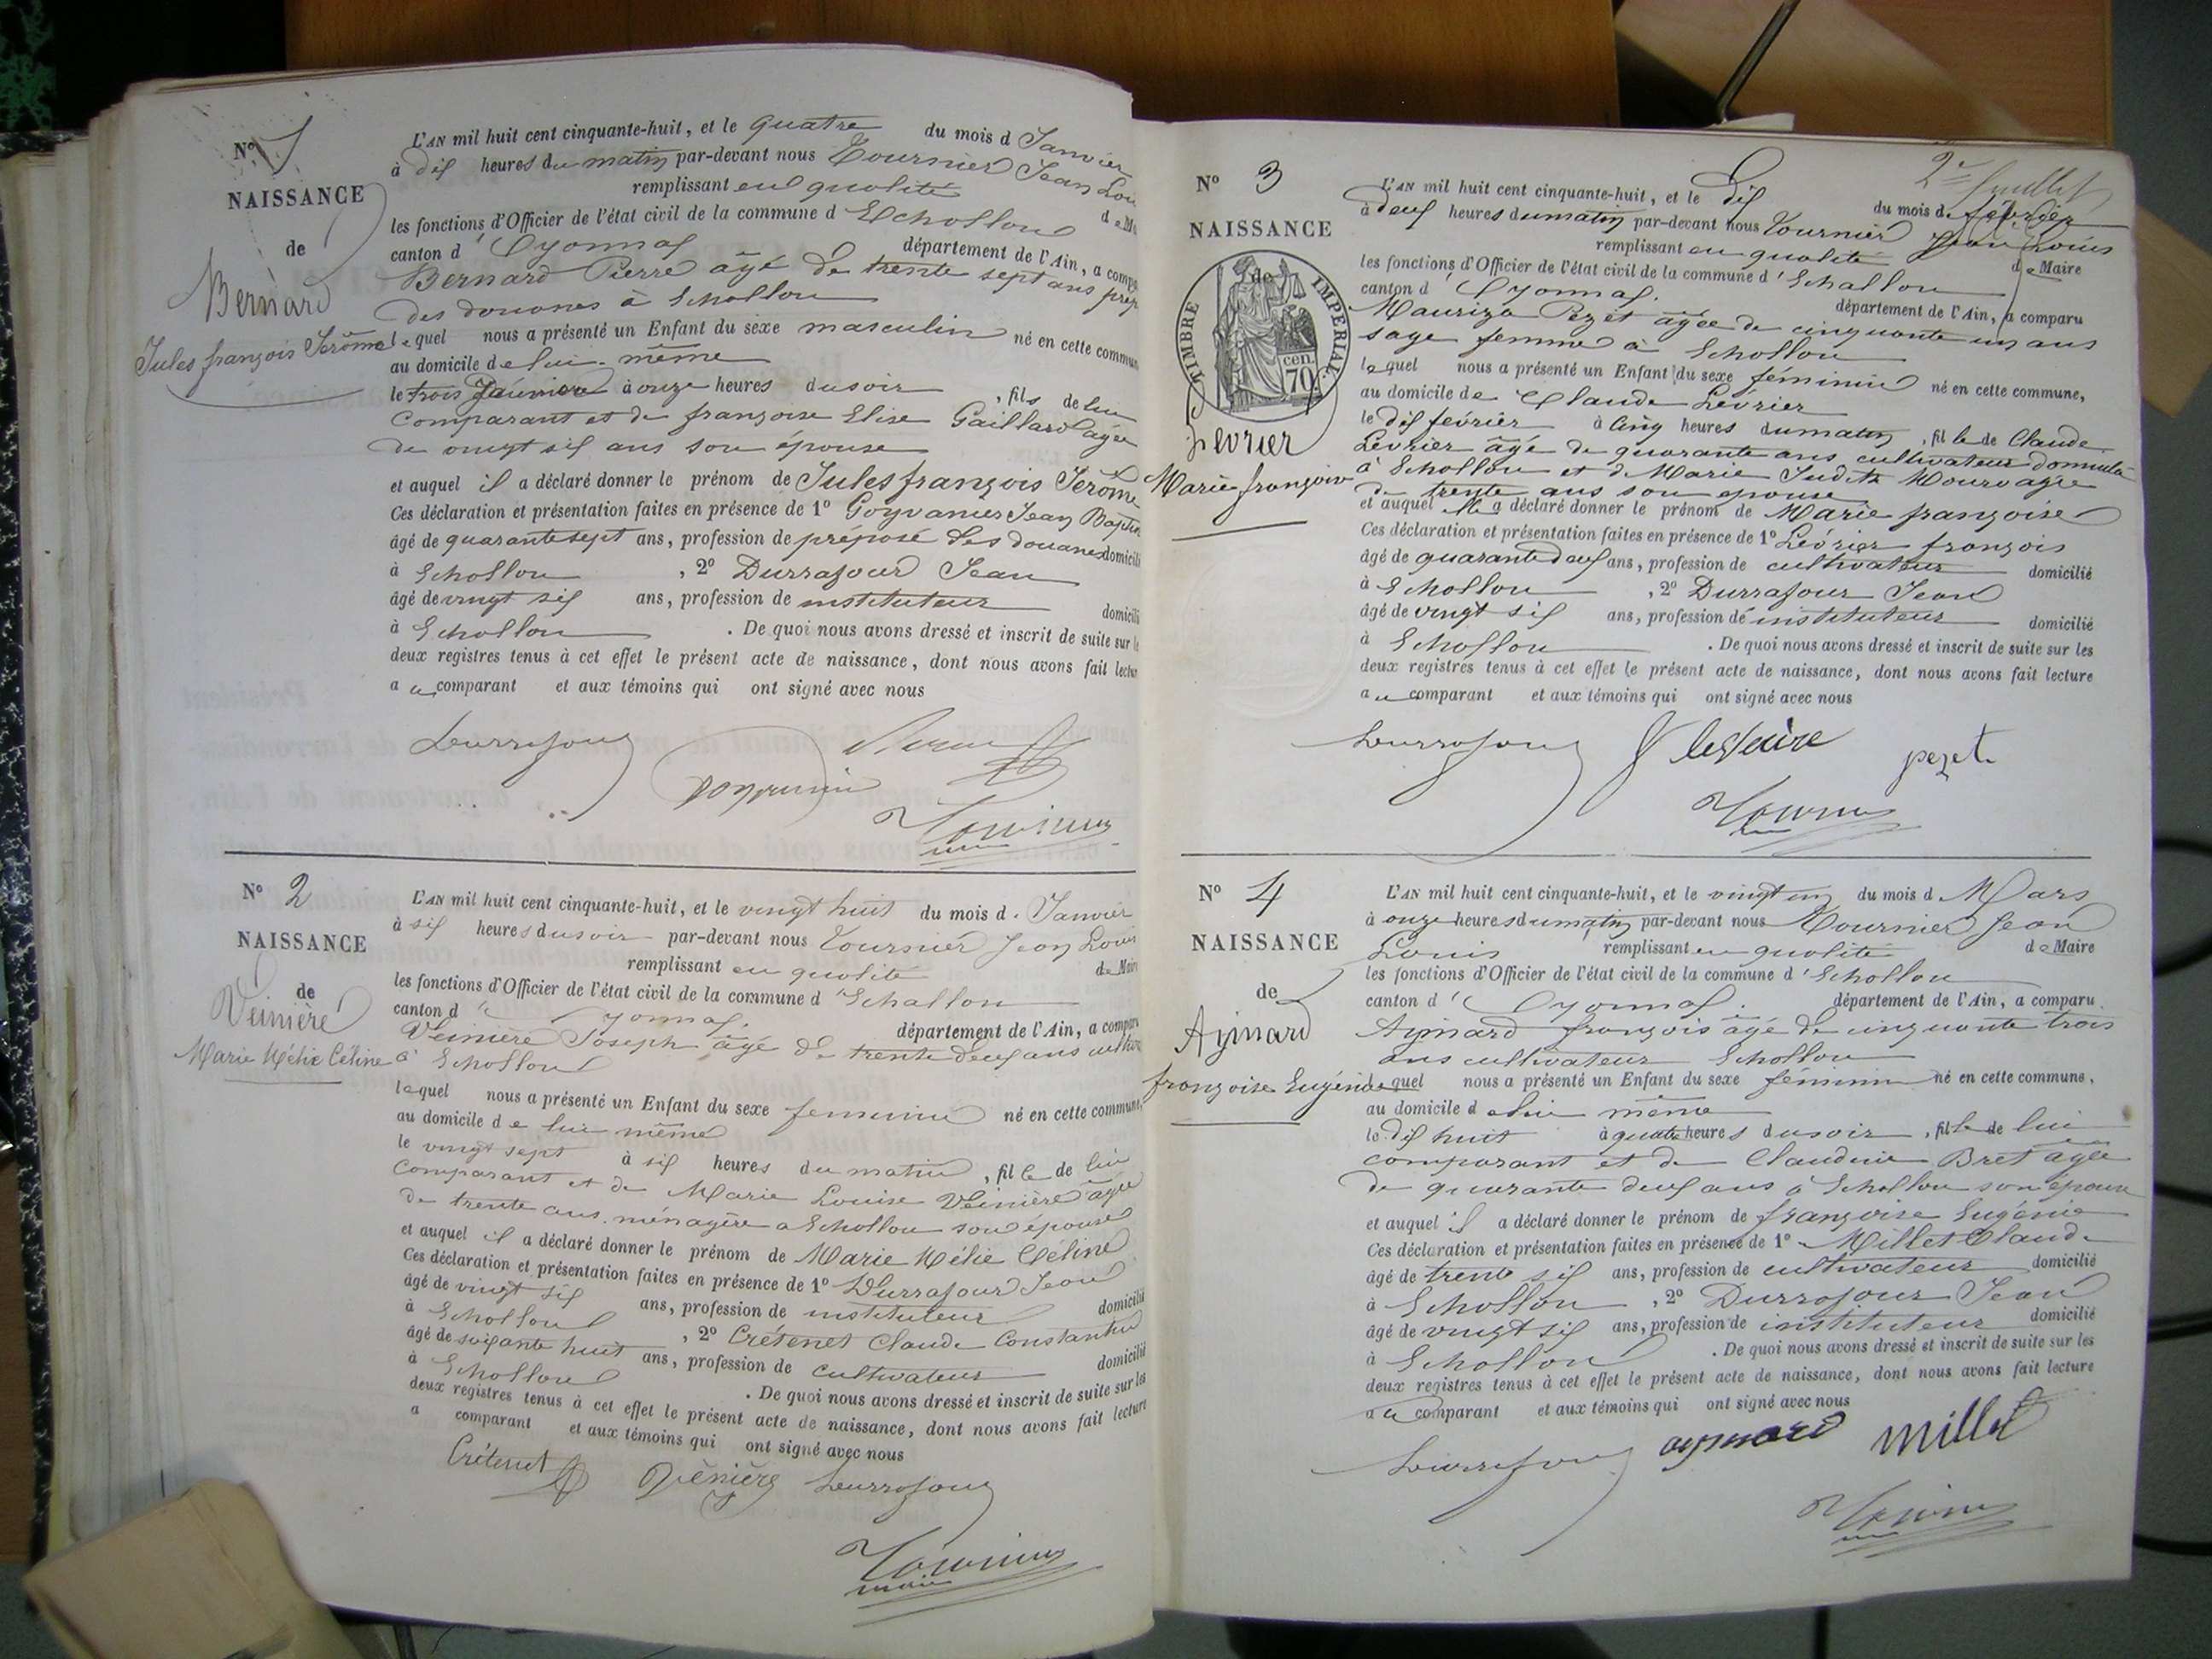 N° 1
NAISSANCE
de
Bernard
Jules françois Jerôme
L'AN mil huit cent cinquante-huit, et le quatre du mois d Janvier
à dix heures du matin par-devant nous Tournier Jean Lou
remplissant en qualité d e M
les fonctions d'Officier de l'état civil de la commune d Echallon
canton d' Oyonnax département de l'Ain, a compa
Bernard Pierre âgé de trente sept ans prép
des douanes à Echallon
lequel nous a présenté un Enfant du sexe masculin né en cette commun
au domicile de lui-même
le trois Janvier à onze heures du soir, fils de lui
comparant et de françoise Elise Gaillard agée
de vingt six ans son épouse
et auquel il a déclaré donner le prénom de Jules françois Jerôme
Ces déclaration et présentation faites en présence de 1° Jean Baptis
âgé de quarante sept ans, profession de préposé des douanes domicili
à Echallon, 2° Durrafour Jean
âgé de vingt six ans, profession de instituteur domicili
à Echallon. De quoi nous avons dressé et inscrit de suite sur l
deux registres tenus à cet effet le présent acte de naissance, dont nous avons fait lectur
a u comparant et aux témoins qui ont signé avec nous
Durrafour
Tournier
N° 2
NAISSANCE
de
Veinière
Marie Mélie Céline
L'AN mil huit cent cinquante-huit, et le vingt huit du mois d. Janvier
à six heures du soir par-devant nous Tournier Jean Louis
remplissant en qualité de Maire
les fonctions d'Officier de l'état civil de la commune d' Echallon
canton d' Oyonnax département de l'Ain, a comparu
Veinière Joseph âgé de trente deux ans cultiv
à Echallon
lequel nous a présenté un Enfant du sexe feminin né en cette commune,
au domicile de lui même
le vingt sept à six heures du matin, fille de lui
comparant et de Marie Louise Veinière âgée
de trente ans ménagère a Echallon son épouse
et auquel il a déclaré donner le prénom de Marie Mélie Céline
Ces déclaration et présentation faites en présence de 1° Durrafour Jean
âgé de vingt six ans, profession de instituteur domicilié
à Echallon, 2° Crétenet Claude Constantin
âgé de soixante huit ans, profession de cultivateur domicilié
à Echallon. De quoi nous avons dressé et inscrit de suite sur les
deux registres tenus à cet effet le présent acte de naissance, dont nous avons fait lecture
a comparant et aux témoins qui ont signé avec nous
Crétenet Vènière Durrafour
Tournier
maire
2e feuillet
N° 3
NAISSANCE
de
TIMBRE IMPERIAL
70 cen.
Levrier
Marie françoise
L'AN mil huit cent cinquante-huit, et le Dix du mois de février
à deux heures du matin par-devant nous Tournier Jean Louis
remplissant en qualité d e Maire
les fonctions d'Officier de l'état civil de la commune d' Echallon
canton d' Oyonnax. département de l'Ain, a comparu
Mauriza Pezet âgée de cinquante un ans
sage femme à Echallon
lequel nous a présenté un Enfant du sexe féminin né en cette commune,
au domicile de Claude Levrier
le dix février à cinq heures du matin, fille de Claude
Levrier âgé de quarante ans cultivateur
à Echallon et de Marie Judith agée
de trente ans son epouse
et auquel elle a déclaré donner le prénom de Marie françoise
Ces déclaration et présentation faites en présence de 1° Lévrier françois
âgé de quarante deux ans, profession de cultivateur domicilié
à Echallon, 2° Durrafour Jean
âgé de vingt six ans, profession de instituteur domicilié
à Echallon. De quoi nous avons dressé et inscrit de suite sur les
deux registres tenus à cet effet le présent acte de naissance, dont nous avons fait lecture
a u comparant et aux témoins qui ont signé avec nous
Durrafour pezet
Tournier
N° 4
NAISSANCE
de
Aymard
françoise Eugénie
L'AN mil huit cent cinquante-huit, et le vingt un du mois d. Mars
à onze heures du matin par-devant nous Tournier Jean
Louis remplissant en qualité de Maire
les fonctions d'Officier de l'état civil de la commune d' Echallon
canton d' Oyonnax. département de l'Ain, a comparu
Aymard françois âgé de cinquante trois
ans cultivateur Echallon
lequel nous a présenté un Enfant du sexe féminin né en cette commune,
au domicile de lui même
le dix huit à quatre heures du soir, fille de lui
comparant et de Claudine Bret âgée
de quarante deux ans à Echallon son épouse
et auquel il a déclaré donner le prénom de françoise Eugénie
Ces déclaration et présentation faites en présence de 1° Millet Claude
âgé de trente six ans, profession de cultivateur domicilié
à Echallon, 2° Durrafour Jean
âgé de vingt six ans, profession de instituteur domicilié
à Echallon. De quoi nous avons dressé et inscrit de suite sur les
deux registres tenus à cet effet le présent acte de naissance, dont nous avons fait lecture
a u comparant et aux témoins qui ont signé avec nous
Durrafour aymard Millet
Tournier